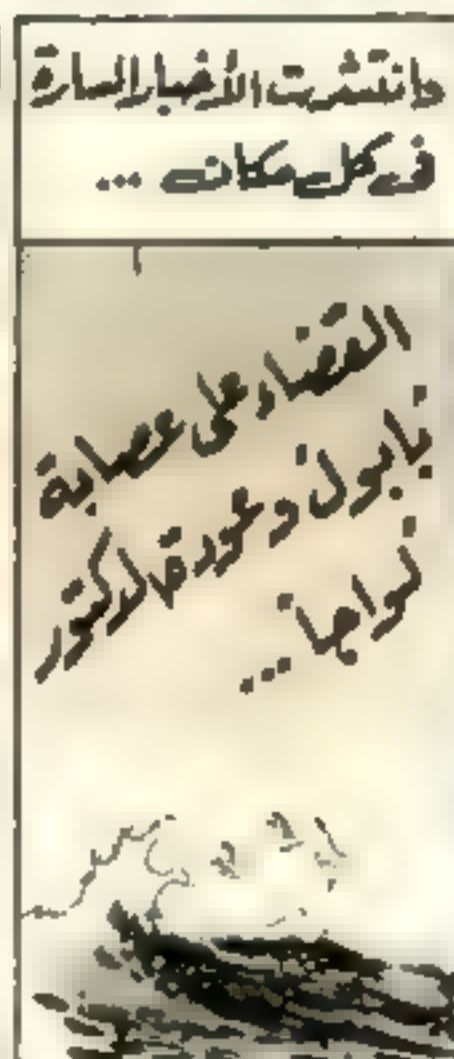 وانتشرت الأخبار السارة
فى كل مكان ...
القضاء على عصابة
نابول وعودة الدكتور
نواجا ...